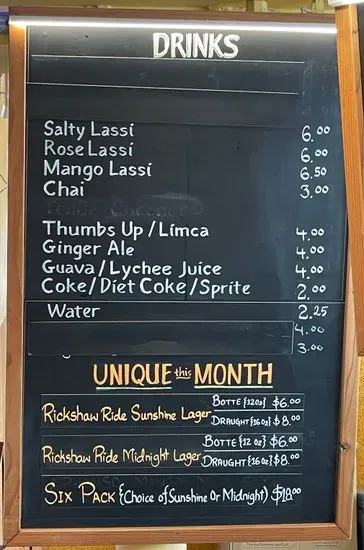 DRINKS
Salty Lassi 6.00
Rose Lassi 6.00
Mango Lassi 6.50
Chai 3.00
Thumbs Up / Limca 4.00
Ginger Ale 4.00
Guava / Lychee Juice 4.00
Coke / Diet Coke / Sprite 2.00
Water 2.25
4.00
3.00
UNIQUE this MONTH
Rickshaw Ride Sunshine Lager BOTTE {12oz} $6.00
DRAUGHT {16oz} $8.00
Rickshaw Ride Midnight Lager BOTTE {12 oz} $6.00
DRAUGHT {16oz} $8.00
SIX PACK {Choice of Sunshine Or Midnight} $18.00